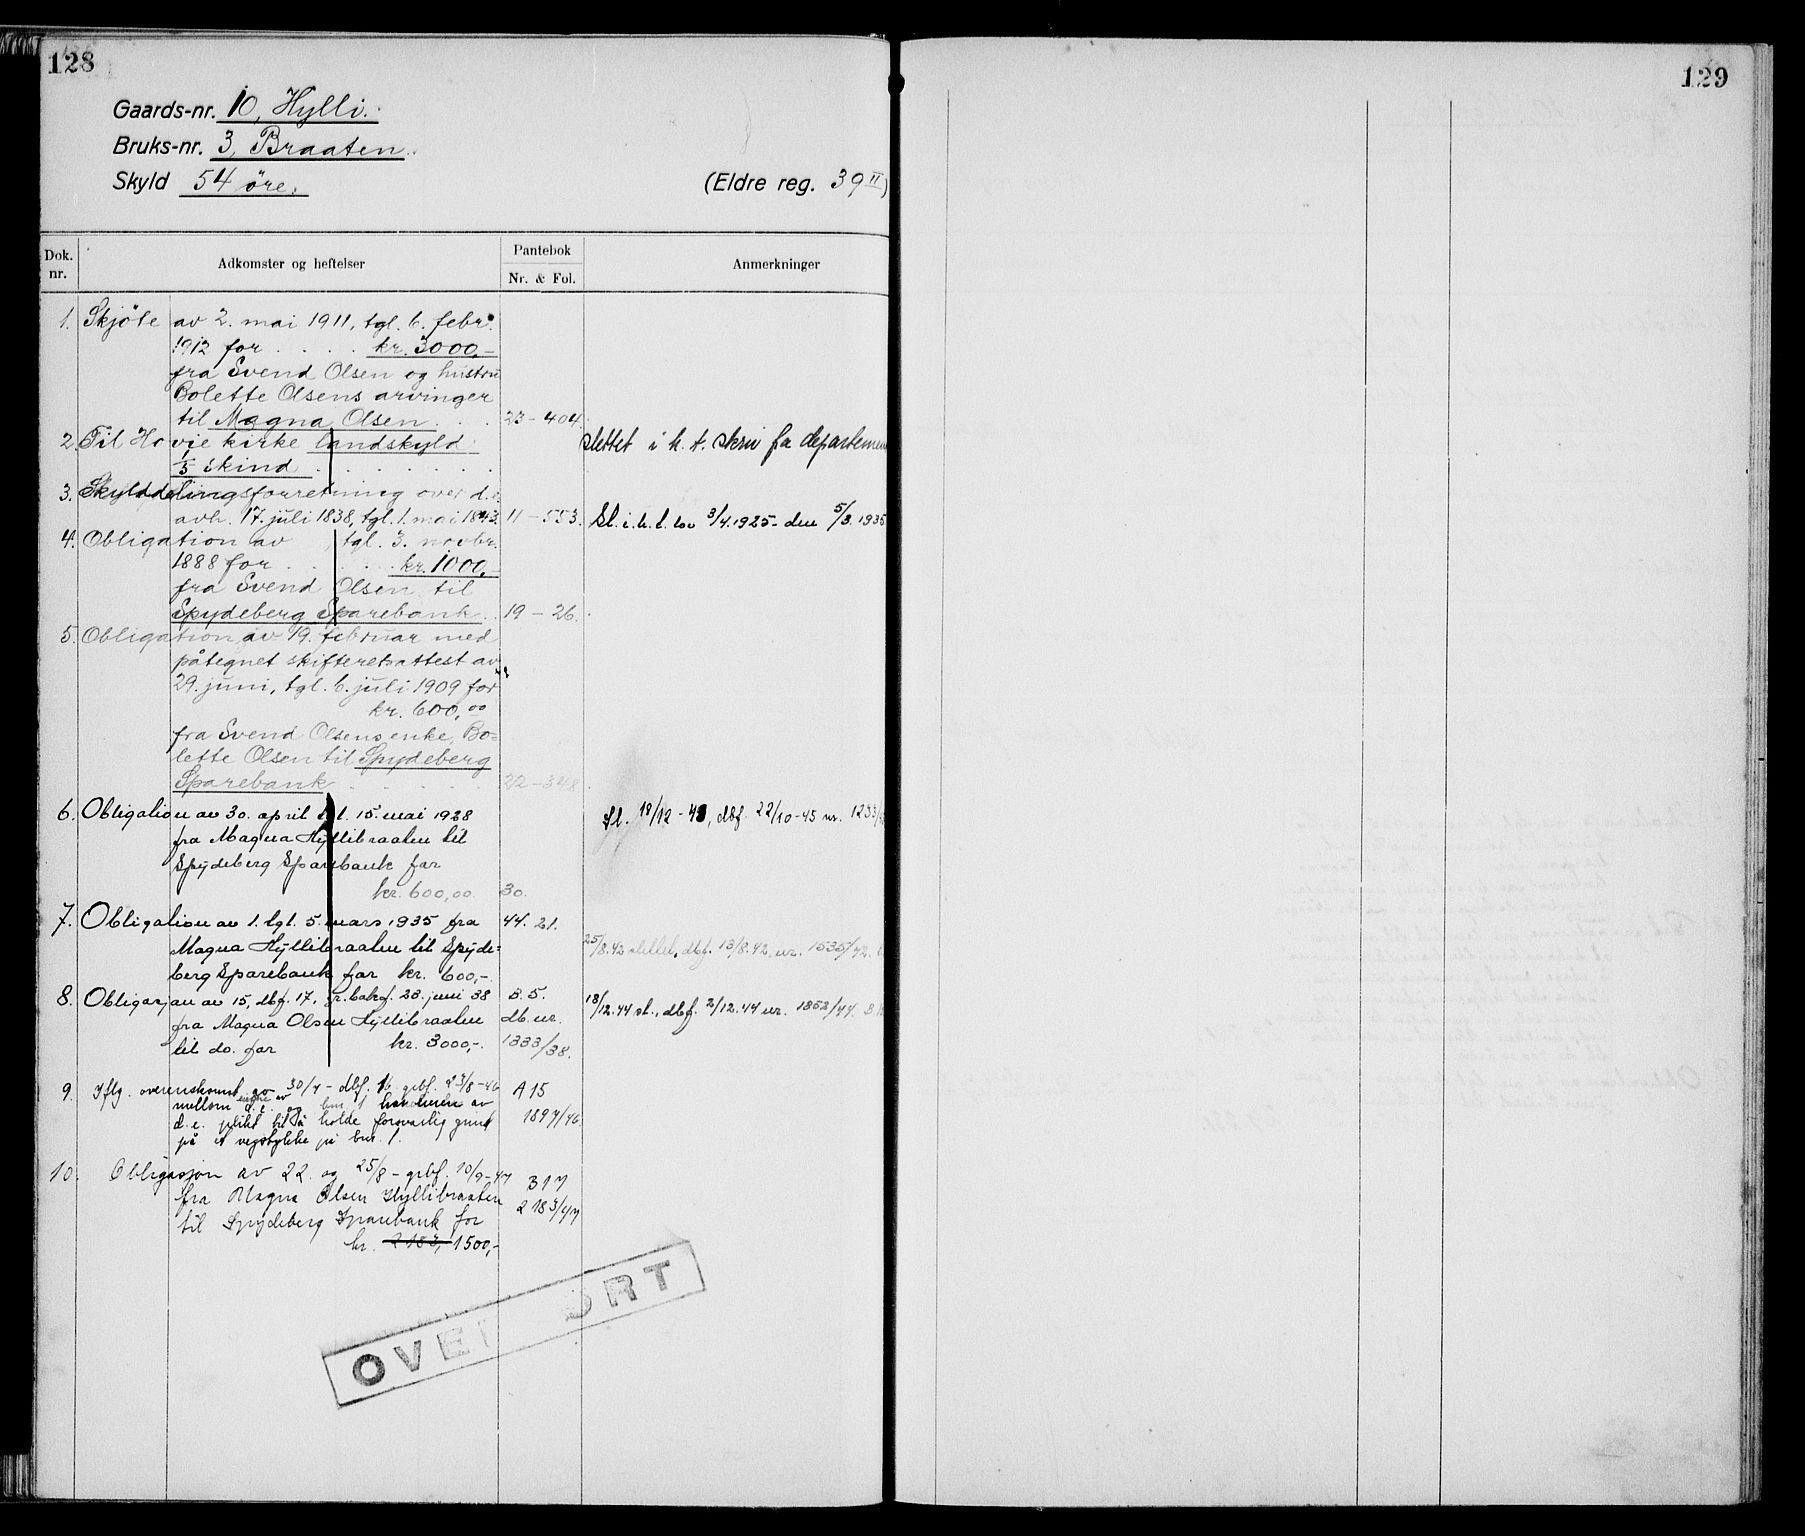 128
129
Gaards-nr. 10, Hylli.
Bruks-nr. 3, Braaten.
Skyld 54 øre.
(Eldre reg. 39 II)
Dok. nr.
Adkomster og heftelser
Pantebok
Nr. & Fol.
Anmerkninger
1. Skjöte av 2. mai 1911, tgl. 6. febr.
1912 for . . . . kr. 3000,-
fra Svend Olsen og hustru
Bolette Olsens arvinger
til Magna Olsen . . . 23-404.
2. Til Hovie kirke landskyld slettet i h. t. skriv fra departemen
1/3 skind . . . . . . .
3. Skylddelingsforretning over d.e.
avh. 17. juli 1838, tgl. 1. mai 1843. 11-553. Sl. i. h. t. lov 3/4.1925- den 5/3.1935
4. Obligation av , tgl. 3. novbr.
1888 for . . . . . kr. 1000,-
fra Svend Olsen til
Spydeberg Sparebank . . 19-26.
5. Obligation av 19. februar med
påtegnet skifteretsattest av
29. juni, tgl. 6. juli 1909 for
kr. 600,00
fra Svend Olsens enke, Bo=
lette Olsen til Spydeberg
Sparebank . . . . . 22-348.
6. Obligation av 30. april tgl. 15. mai 1928 Sl. 18/12-45, dbf. 22/10-45 nr. 1233/
fra Magna Hyllibraaten til
Spydeberg Sparebank for
kr. 600,00. 30.
7. Obligation av 1. tgl. 5. mars 1935 fra 44. 21.
Magna Hyllibraaten til Spyde= 25/8.42 slettet, dbf. 13/8.42, nr. 1535/42.
berg Sparebank for kr. 600,-.
8. Obligasjon av 15, dbf. 17, gr.bokf. 23. juni 38 B. 5. 18/12.44 sl., dbf. 2/12.44 nr. 1852/44. B
fra Magna Olsen Hyllibraaten db. nr.
til do. for kr. 3000,-. 1333/38.
9. Iflg. overenskomst av 30/7 - dbf. 16. grbf. 27/8-46 A 15
mellom eigne av d.e. og bnr 1 har eieren av
d.e. plikt til å holde forsvarlig grind 1897/46.
på et vegstykke på bnr. 1.
10. Obligasjon av 22. og 25/8 - grbf. 10/9-47 B 17
fra Magna Olsen Hyllibraaten 2183/47
til Spydeberg Sparebank for
kr. 2183, 1500,-
OVE ØRT